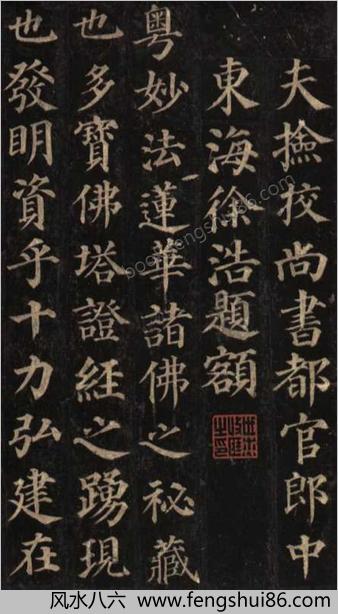 夫撿挍尚書都官郎中
東海徐浩題額
粤妙法蓮華諸佛之祕藏
也多寶佛塔證經之踴現
也發明資乎十力弘建在
风水八六 www.fengshui86.com